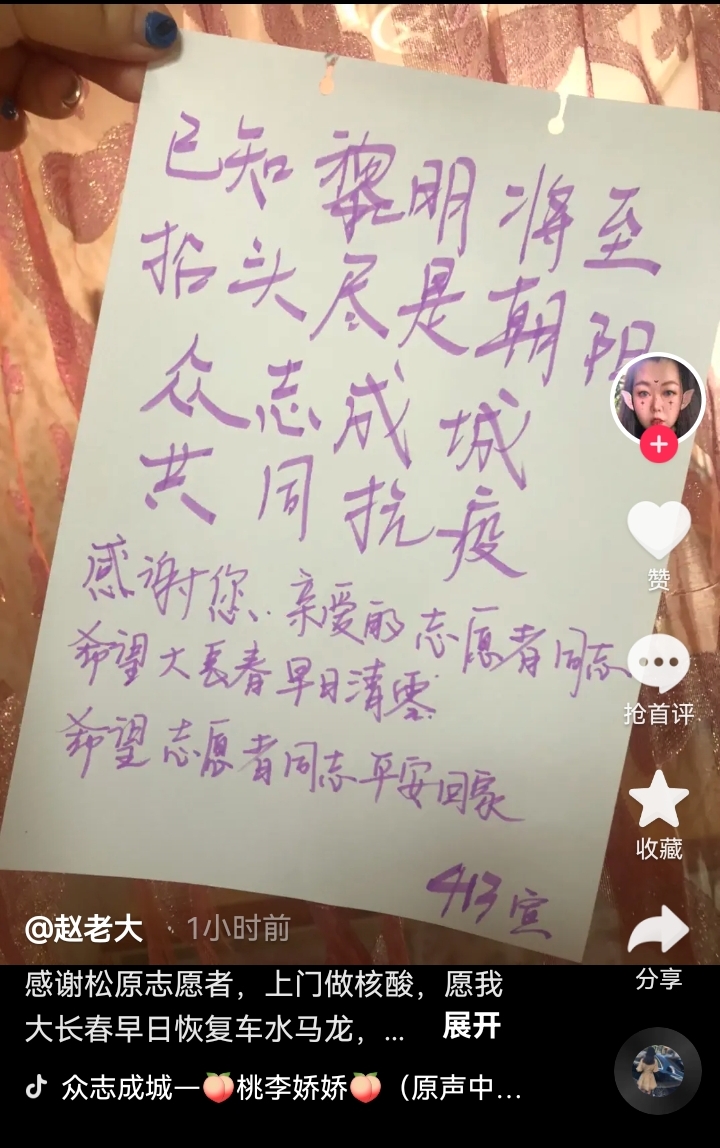 已知黎明将至
抬头尽是朝阳
众志成城
共同抗疫
感谢您.亲爱的志愿者同志
希望大长春早日清零.
希望志愿者同志平安回家
413宣
赞
抢首评
收藏
分享
@赵老大 · 1小时前
感谢松原志愿者，上门做核酸，愿我
大长春早日恢复车水马龙，... 展开
众志成城一🍑桃李娇娇🍑（原声中...